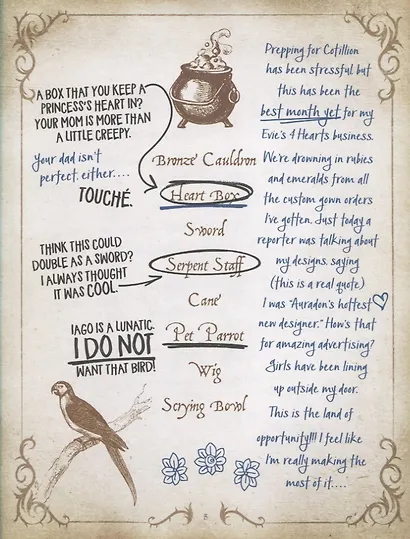 A BOX THAT YOU KEEP A
PRINCESS'S HEART IN?
YOUR MOM IS MORE THAN
A LITTLE CREEPY.
Your dad isn't
perfect, either....
TOUCHÉ.
THINK THIS COULD
DOUBLE AS A SWORD?
I ALWAYS THOUGHT
IT WAS COOL.
IAGO IS A LUNATIC.
I DO NOT
WANT THAT BIRD!
Bronze Cauldron
Heart Box
Sword
Serpent Staff
Cane
Pet Parrot
Wig
Scrying Bowl
Prepping for Cotillion
has been stressful, but
this has been the
best month yet for my
Evie's 4 Hearts business.
We're drowning in rubies
and emeralds from all
the custom gown orders
I've gotten. Just today a
reporter was talking about
my designs, saying
(this is a real quote)
I was "Auradon's hottest
new designer." How's that
for amazing advertising?
Girls have been lining
up outside my door.
This is the land of
opportunity!!! I feel like
I'm really making the
most of it....